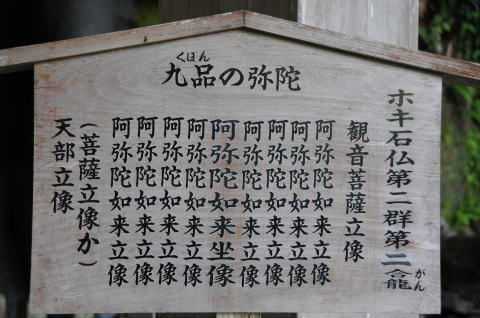 九品の弥陀
くほん
ホキ石仏第二群第二龕
がん
観音菩薩立像
阿弥陀如来立像
阿弥陀如来立像
阿弥陀如来立像
阿弥陀如来立像
阿弥陀如来坐像
阿弥陀如来立像
阿弥陀如来立像
阿弥陀如来立像
阿弥陀如来立像
(菩薩立像か)
天部立像